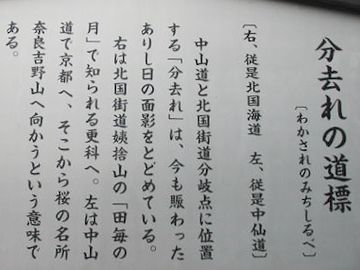 分去れの道標
〔わかされのみちしるべ〕
〔右、従是北国海道 左、従是中仙道〕
中山道と北国街道分岐点に位置
する「分去れ」は、今も賑わった
ありし日の面影をとどめている。
右は北国街道姨捨山の「田毎の
月」で知られる更科へ。左は中山
道で京都へ、そこから桜の名所
奈良吉野山へ向かうという意味で
ある。